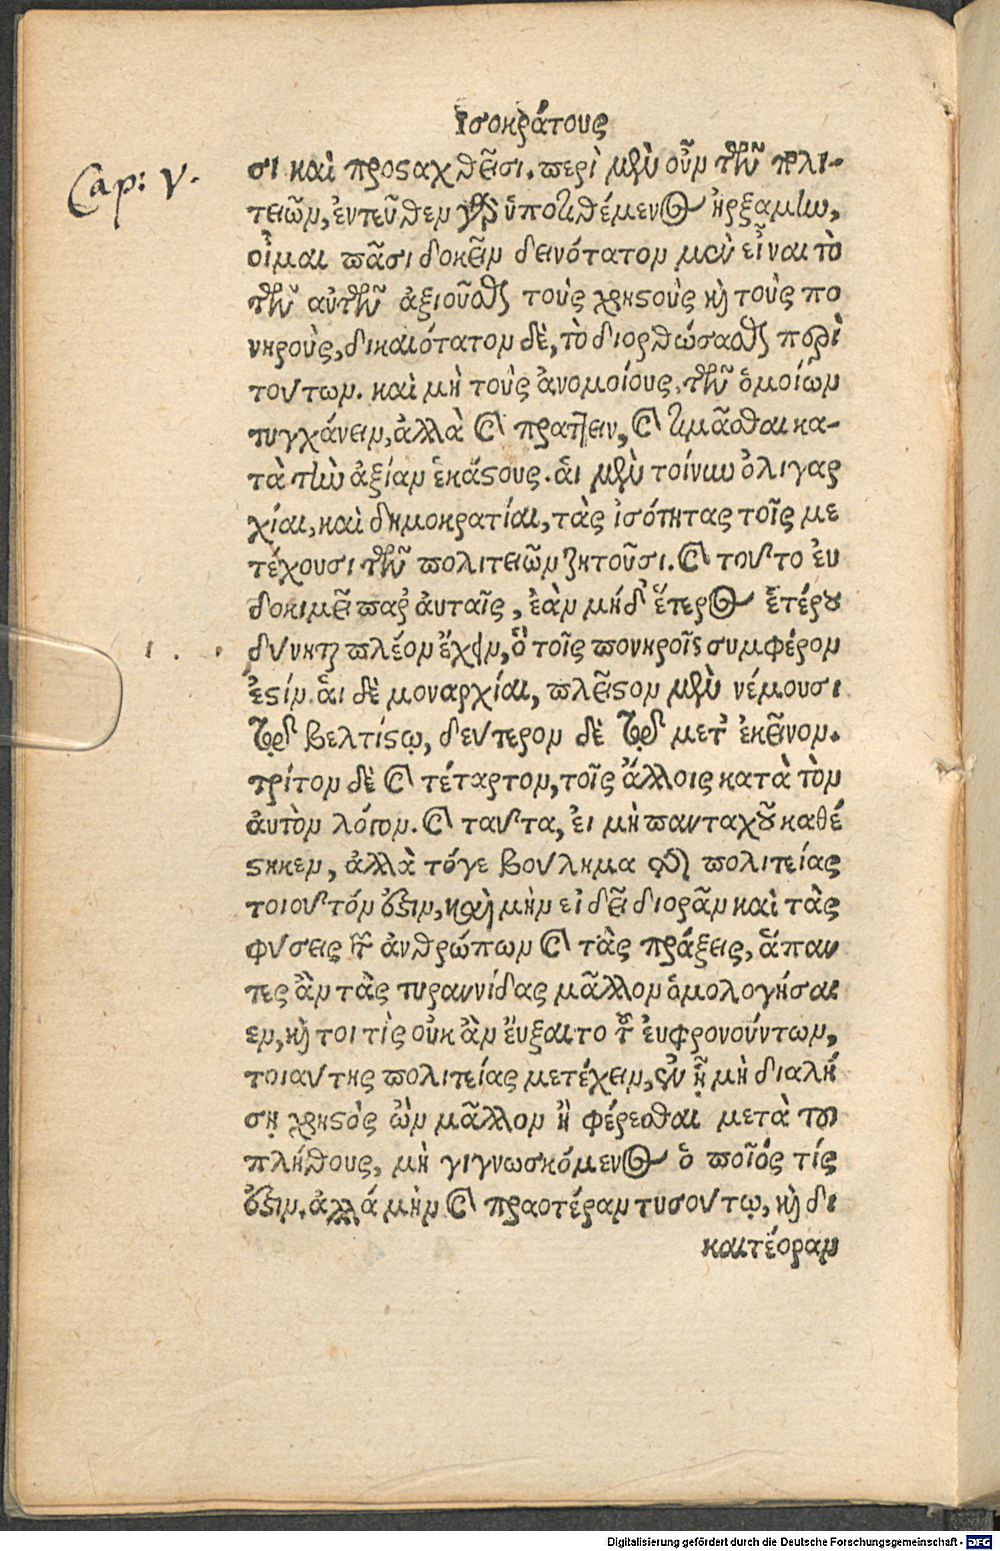 Ἰσοκράτους
Cap: V.
σι καὶ προςαχθεῖσι. περὶ μὲν οὖν τῶν πολι-
τειῶν, ἐντεῦθεν γὰρ ὑποτιθέμενος ἠρξάμην,
οἶμαι πᾶσι δοκεῖν δεινότατον μὲν εἶναι τὸ
τῶν αὐτῶν ἀξιοῦσθαι τοὺς χρηστοὺς καὶ τοὺς πο
νηροὺς, δικαιότατον δὲ, τὸ διορθώσασθαι περὶ
τούτων. καὶ μὴ τοὺς ἀνομοίους, τῶν ὁμοίων
τυγχάνειν, ἀλλὰ καὶ πράττειν, καὶ τιμᾶσθαι κα-
τὰ τὴν ἀξίαν ἑκάστους. ἁι μὲν τοίνυν ὀλιγαρ
χίαι, καὶ δημοκρατίαι, τὰς ἰσότητας τοῖς με
τέχουσι τῶν πολιτειῶν ζητοῦσι. καὶ τοῦτο ἐυ
δοκιμεῖ παρ' ἀυταῖς, ἐὰν μήδ' ἕτερος ἑτέρου
δύνηται πλέον ἔχειν, ὃ τοῖς πονηροῖς συμφέρον
ἐστίν. ἁι δὲ μοναρχίαι, πλεῖστον μὲν νέμουσι
τῷ βελτίστῳ, δεύτερον δὲ τῷ μετ' ἐκεῖνον.
τρίτον δὲ καὶ τέταρτον, τοῖς ἄλλοις κατὰ τὸν
ἀυτὸν λόγον. καὶ ταῦτα, ἐι μὴ πανταχοῦ καθέ
στηκεν, ἀλλὰ τόγε βούλημα τῆς πολιτείας
τοιοῦτόν ἐστιν, καὶ μὴν εἰ δεῖ διορᾶν καὶ τὰς
φύσεις τῶν ἀνθρώπων καὶ τὰς πράξεις, ἅπαν
τες ἂν τὰς τυραννίδας μᾶλλον ὁμολογήσαι
εν, καὶ τοι τὶς οὐκ ἂν ἔυξαιτο τῶν ἐυφρονούντων,
τοιαύτης πολιτείας μετέχειν, ἐν ᾗ μὴ διαλή
σῃ χρηστὸς ὢν μᾶλλον ἢ φέρεσθαι μετὰ τοῦ
πλήθους, μὴ γιγνωσκόμενος ὁ ποῖός τίς
ἐστιν. ἀλλά μὴν καὶ πραοτέραν τυσούτῳ, καὶ δι
καιτέοραν
Digitalisierung gefördert durch die Deutsche Forschungsgemeinschaft - DFG